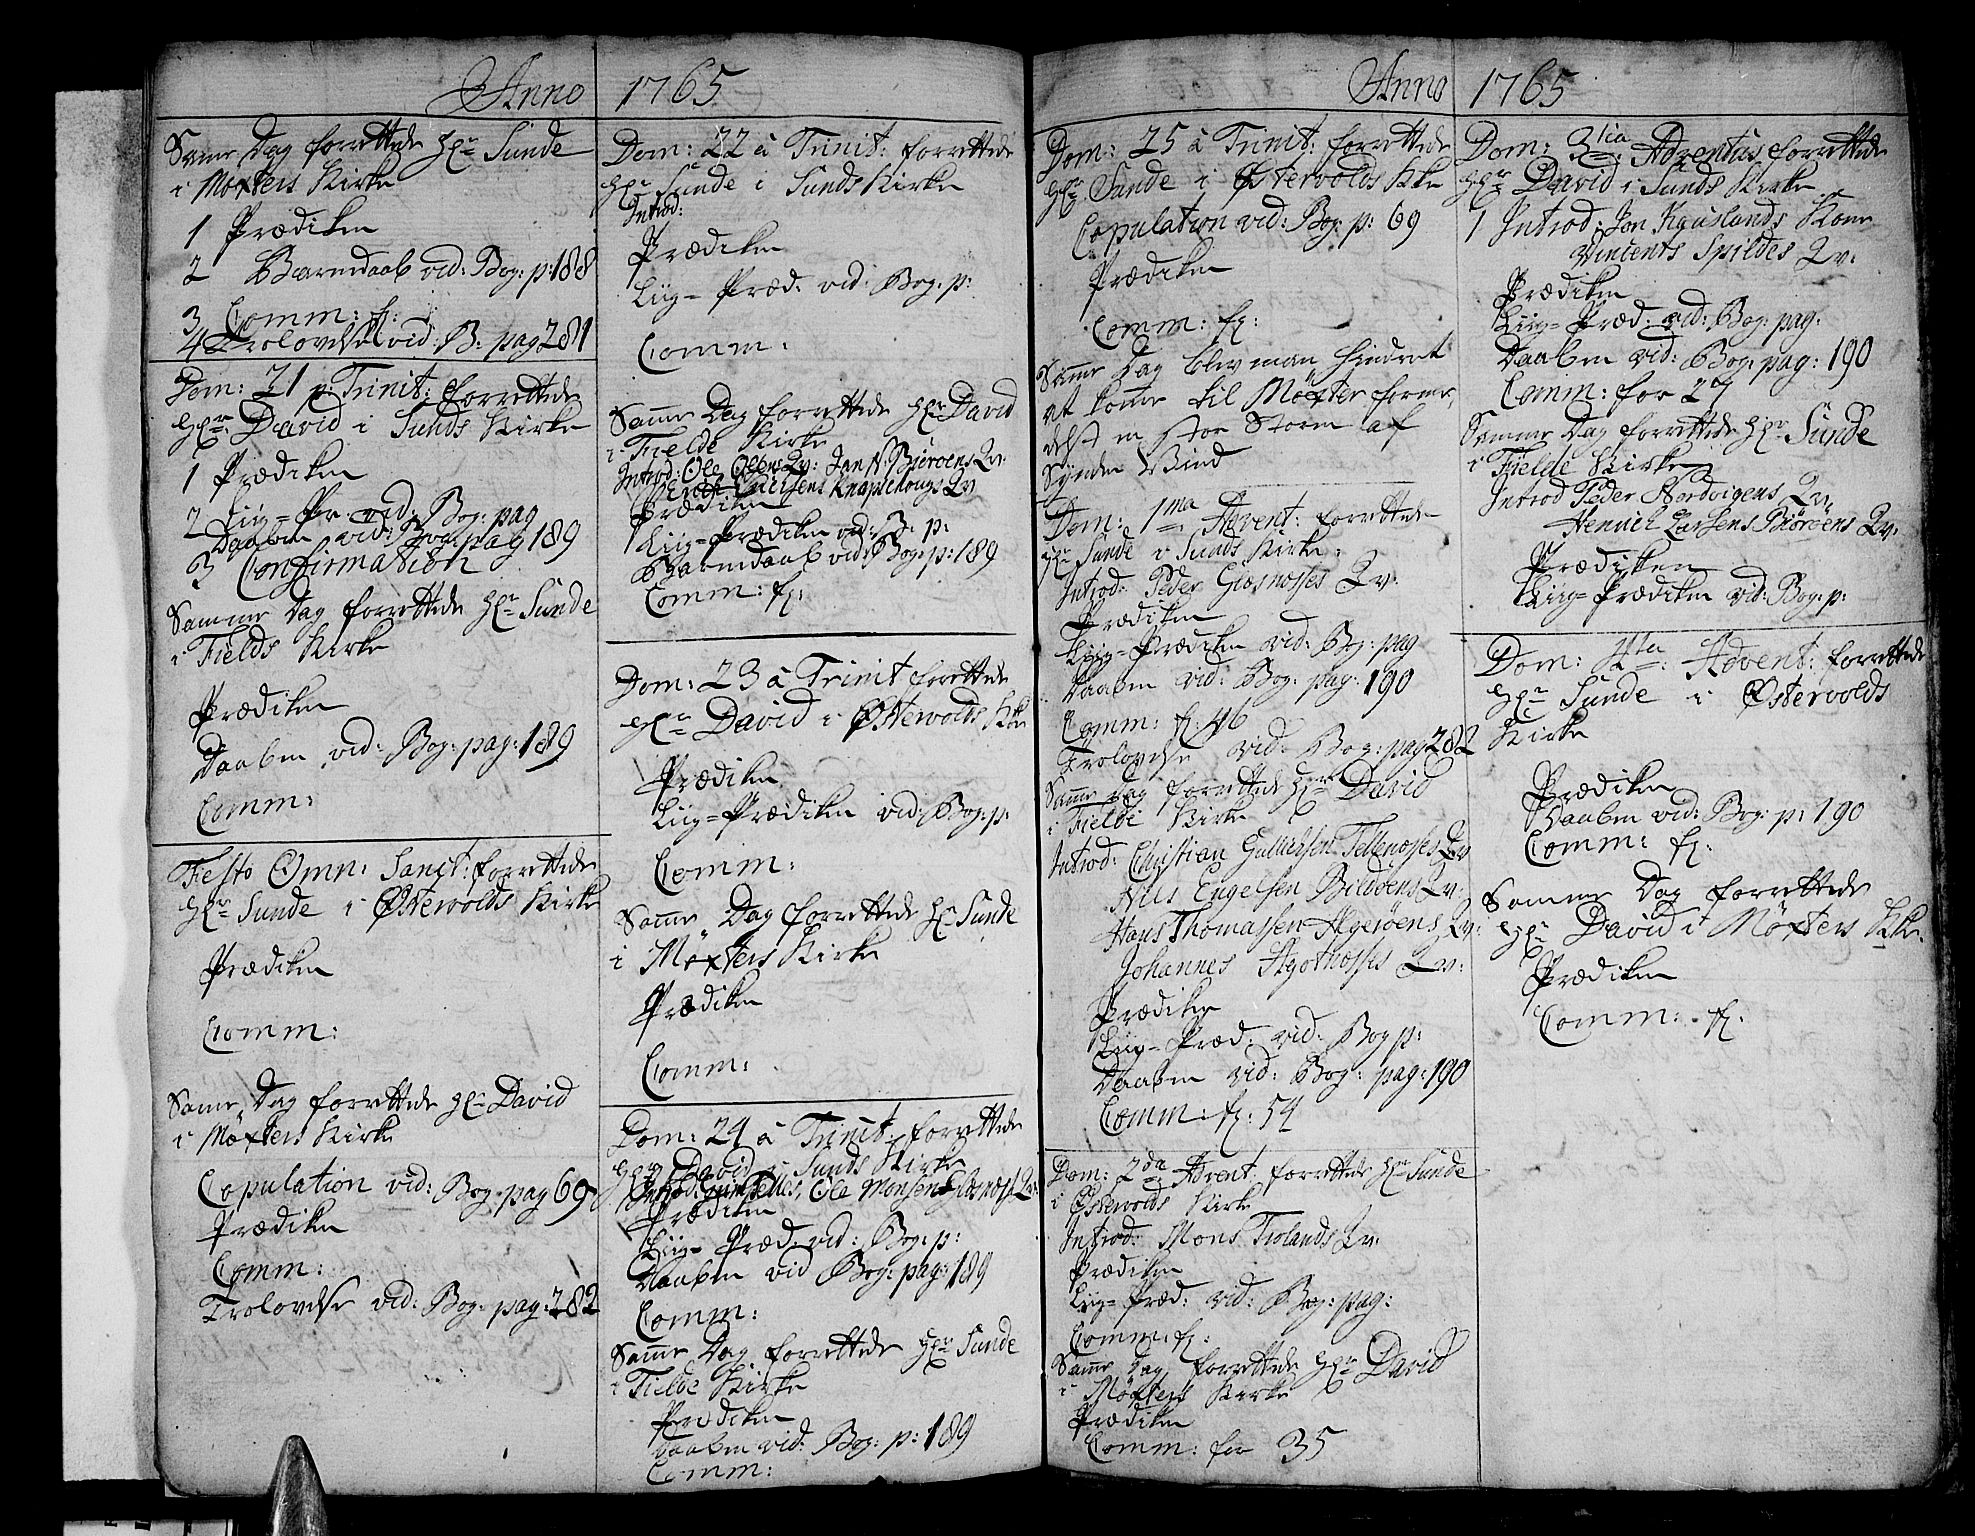 Anno 1765
Samme Dag forrettede Hr. Sunde
i Møxters Kirke
1 Prædiken
2 Barnedaab vid: Bog: p: 188
3 Comm: fr:
4 Trolovelse vid: B: pag 281
Dom: 21 p: Trinit: forrettede
Hr. David i Sunds Kirke
1 Prædiken
2 Liig-Pr. vid: Bog: pag
Daaben vid: Bog: pag 189
3 Confirmation
Samme Dag forrettede Hr. Sunde
i Fields Kirke
Prædiken
Daaben vid: Bog: pag: 189
Comm:
Festo Omn: Sanct: forrettede
Hr. Sunde i Østervolds Kirke
Prædiken
Comm:
Samme Dag forrettede Hr. David
i Møxters Kirke
Copulation vid: Bog: pag 69
Prædiken
Comm:
Trolovelse vid: Bog: pag: 282
Dom: 22 à Trinit: forrettede
Hr. Sunde i Sunds Kirke
Introd:
Prædiken
Liig-Præd: vid: Bog: p:
Comm:
Samme Dag forrettede Hr. David
i Fielde Kirke
Introd: Ole Olsens Qv: Jan N. Biørøens Qv:
Erichsens Knappehougs Qv
Prædiken
Liig-Prædiken vid: B: p:
Barnedaab vid: Bog: p: 189
Comm: fr:
Dom: 23 à Trinit forrettede
Hr. David i Østervolds Kke
Prædiken
Liig-Prædiken vid: Bog: p:
Comm:
Samme Dag forrettede Hr. Sunde
i Møxters Kirke
Prædiken
Comm:
Dom: 24 à Trinit: forrettede
Hr. David i Sunds Kirke
Introd: Telles, Ole Monsen Giøsnæss Qv:
Prædiken
Liig-Præd: vid: Bog: p:
Daaben vid Bog: pag: 189
Comm:
Samme Dag forrettede Hr. Sunde
i Fielde Kirke
Prædiken
Daaben vid: Bog: p: 189
Comm:
Anno 1765
Dom: 25 à Trinit: forrettede
Hr. Sunde i Østervolds Kke
Copulation vid: Bog: p: 69
Prædiken
Comm: fr:
Samme Dag blev man hindret
at komme til Møxter forme-
delst en stor Storm af
Synden Vind
Dom: 1ma Advent: forrettede
Hr. Sunde i Sunds Kirke:
Introd: Peder Giøsnæsses Qv:
Prædiken
Liig-Prædiken vid: Bog: pag
Daaben vid: Bog: pag: 190
Comm: fr: 46
Trolovelse vid: Bog: pag 282
Samme Dag forrettede Hr. David
i Fielde Kirke
Introd: Christian Gullichsen Tellenæsses Qv
Nils Engelsen Bildøens Qv:
Hans Thomassen Algerøens Qv:
Johannes Agotnæsses Qv:
Prædiken
Liig-Præd: vid: Bog p:
Daaben vid: Bog: pag: 190
Comm: fr: 54
Dom: 2da Advent forrettede Hr. Sunde
i Østervolds Kirke
Introd: Mons Trolands Qv:
Prædiken
Liig-Præd: vid: Bog: pag:
Comm: fr:
Samme Dag forrettede Hr. David
i Møxters Kirke
Prædiken
Comm: for 35
Dom: 3tia Adventus forrettede
Hr. David i Sunds Kirke
1 Introd: Jon Kauslands Kone
Vincents Spildes Qv:
Prædiken
Liig-Præd: vid: Bog: pag:
Daaben vid: Bog: pag: 190
Comm: for 27
Samme Dag forrettede Hr. Sunde
i Fielde Kirke
Introd Peder Nordvigens Qv:
Henrich Larsens Biørøens Qv:
Prædiken
Liig-Prædiken vid: Bog: p:
Dom: 4ta Advent: forrettede
Hr. Sunde i Østervolds
Kirke
Prædiken
Daaben vid: Bog: p: 190
Comm: fr:
Samme Dag forrettede
Hr. David i Møxters Kke:
Prædiken
Comm: fr: